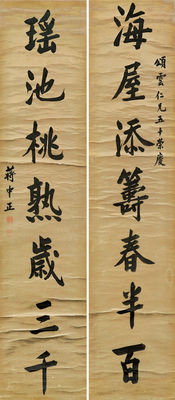 頌雲仁兄五十榮慶
海屋添籌春半百
瑤池桃熟歲三千
蔣中正